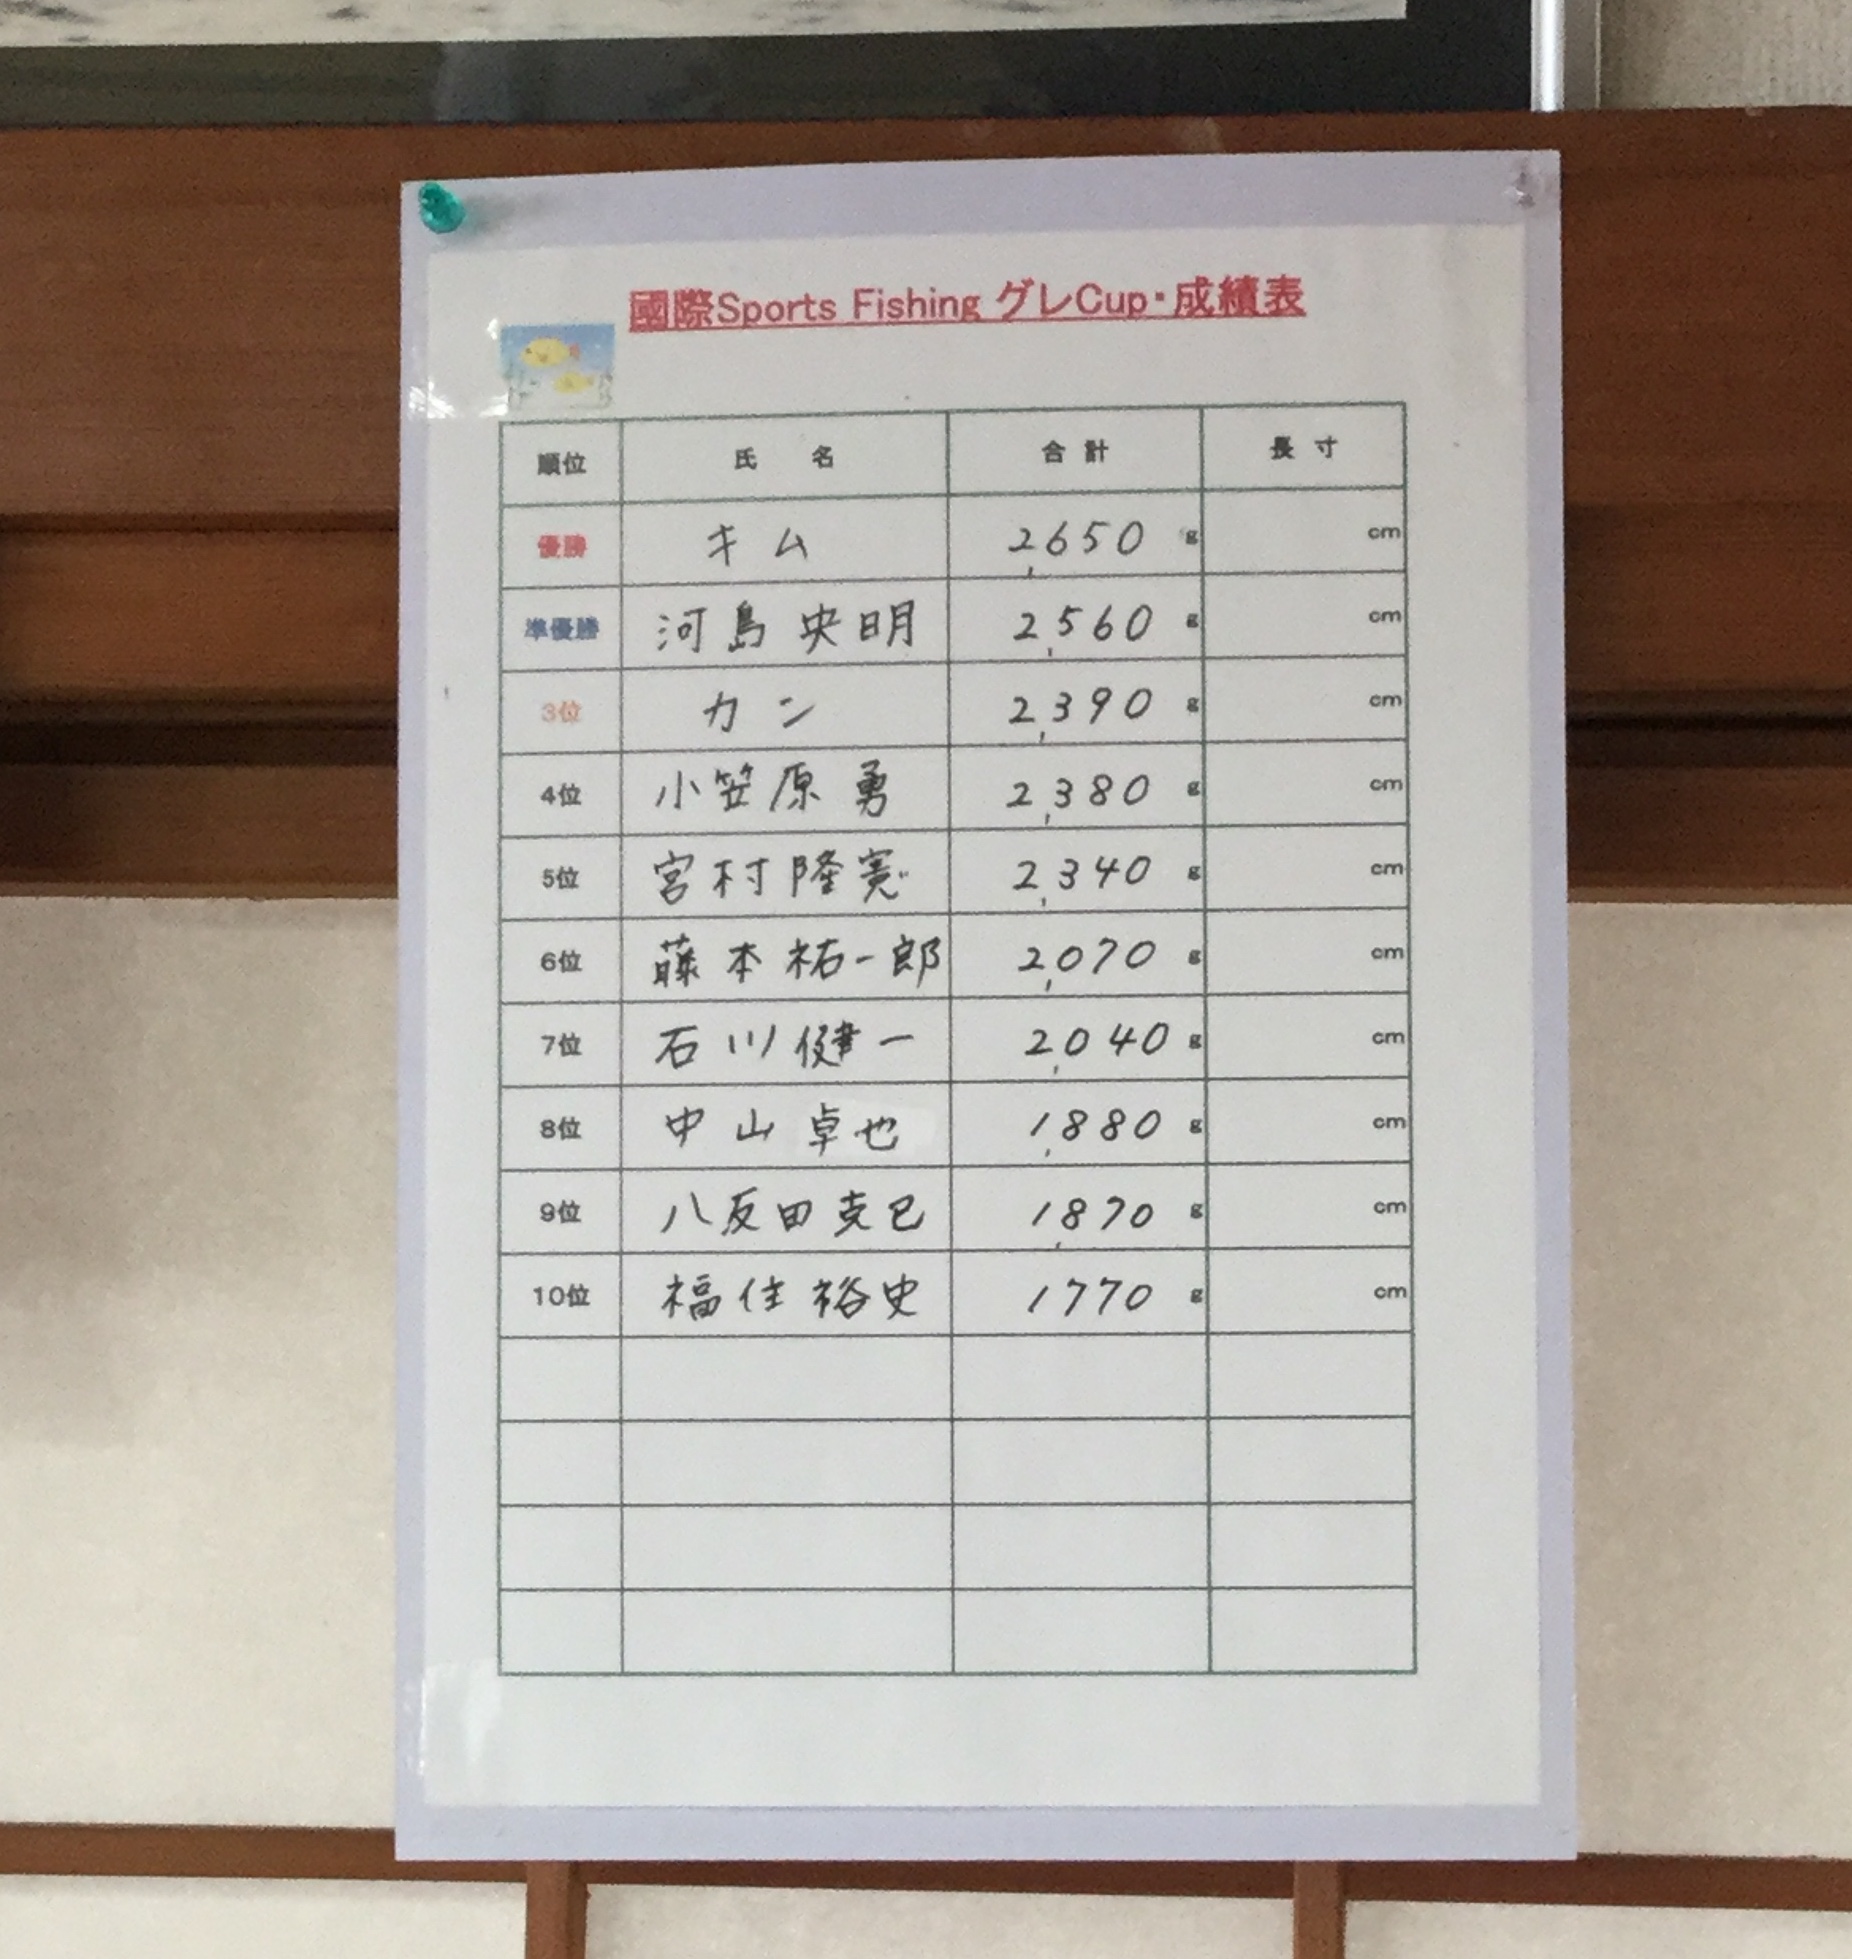 國際Sports Fishing グレCup・成績表
順位 氏 名 合計 長寸
優勝 キム 2,650 g cm
準優勝 河島央明 2,560 g cm
3位 カン 2,390 g cm
4位 小笠原勇 2,380 g cm
5位 宮村隆寛 2,340 g cm
6位 藤本祐一郎 2,070 g cm
7位 石川健一 2,040 g cm
8位 中山卓也 1,880 g cm
9位 八反田克己 1,870 g cm
10位 福住裕史 1770 g cm